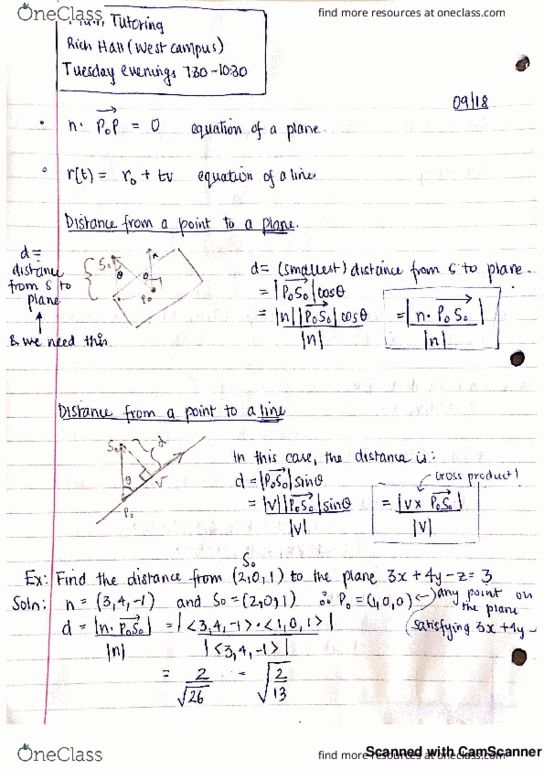 OneClass
find more resources at oneclass.com
Tutoring
Rich Hall (West campus)
Tuesday evenings 7:30-10:30
09/18
• n. P₀P = 0 equation of a plane.
• r(t) = r₀ + tv equation of a line
Distance from a point to a plane.
d =
distance
from S to
plane
↑
& we need this
S₀
θ
θ
P₀
d = (smallest) distance from S to plane.
= |P₀S₀| cosθ
= |n||P₀S₀| cosθ / |n|
= |n. P₀S₀| / |n|
Distance from a point to a line
S₀
d
θ
v
P₀
In this case, the distance is:
d = |P₀S₀| sinθ
cross product!
= |v||P₀S₀| sinθ / |v|
= |v x P₀S₀| / |v|
S₀
Ex: Find the distance from (2,0,1) to the plane 3x + 4y - z = 3
Soln: n = (3,4,-1) and S₀ = (2,0,1) ∴ P₀ = (1,0,0) any point on
the plane
(satisfying 3x + 4y -
d = |n. P₀S₀| / |n| = |<3,4,-1> · <1,0,1>| / |<3,4,-1>|
= 2/√26 = √(2/13)
OneClass
find more resources at oneclass.com
Scanned with CamScanner